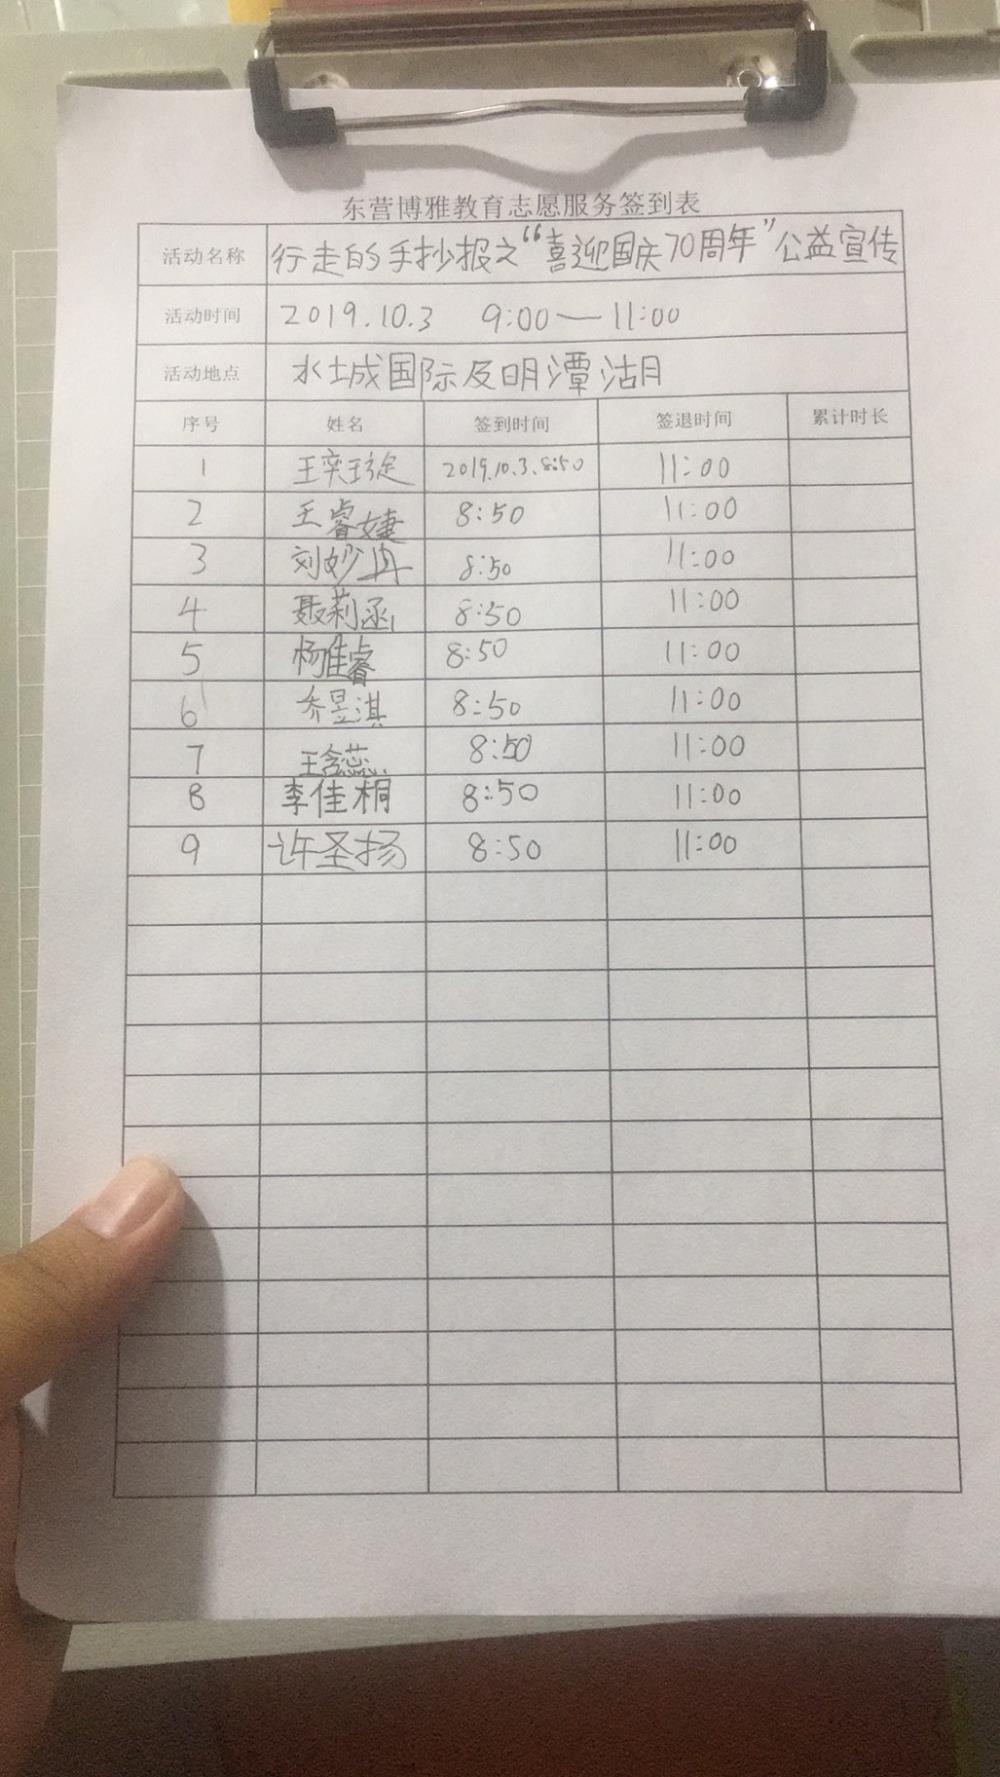 东营博雅教育志愿服务签到表
活动名称 行走的手抄报之“喜迎国庆70周年”公益宣传
活动时间 2019.10.3 9:00—11:00
活动地点 水城国际及明潭沽月
序号 姓名 签到时间 签退时间 累计时长
1 王奕琔 2019.10.3.8:50 11:00
2 王睿婕 8:50 11:00
3 刘妙冉 8:50 11:00
4 聂莉函 8:50 11:00
5 杨佳睿 8:50 11:00
6 乔昱淇 8:50 11:00
7 王含蕊 8:50 11:00
8 李佳桐 8:50 11:00
9 许圣扬 8:50 11:00